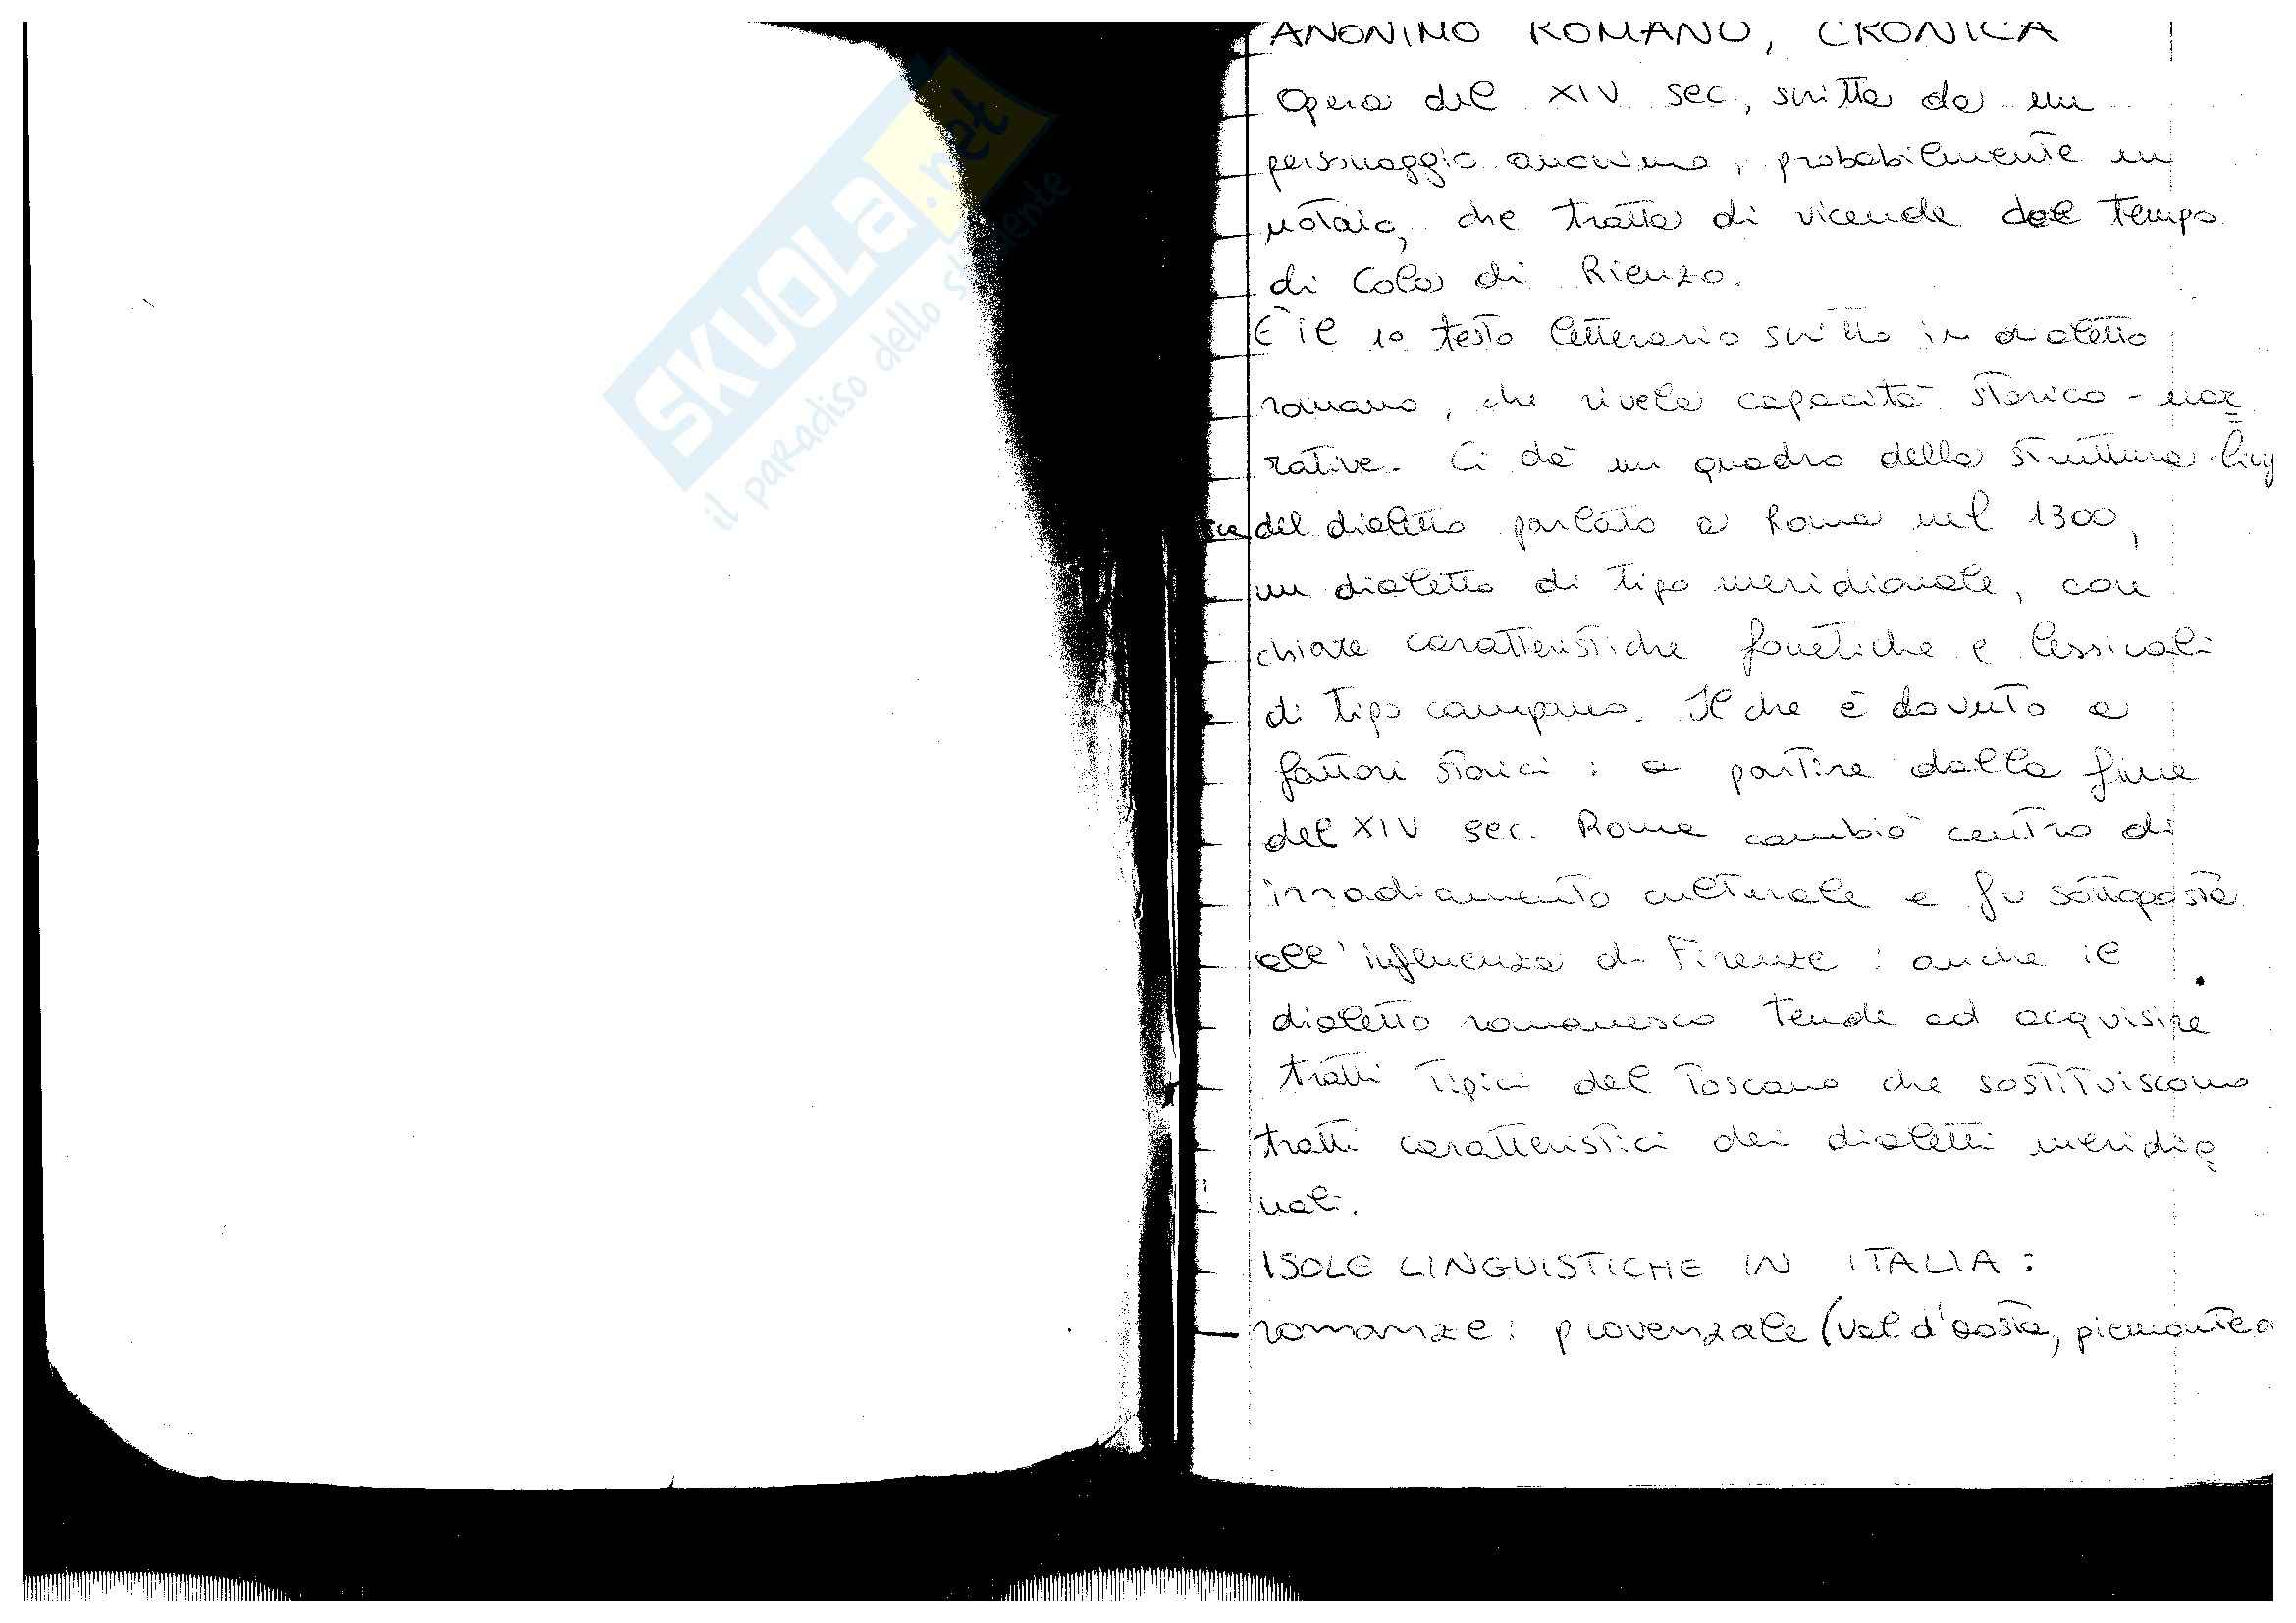 SKUOLA.net
il paradiso dello studente
ANONIMO ROMANO, CRONICA
Opera del XIV sec, scritta da un
personaggio anonimo, probabilmente un
notaio, che tratta di vicende del tempo
di Cola di Rienzo.
È il 1º testo letterario scritto in dialetto
romano, che rivela capacità storico-nar
rative. Ci dà un quadro della struttura
del dialetto parlato a Roma nel 1300,
un dialetto di tipo meridionale, con
chiare caratteristiche fonetiche e lessicali
di tipo campano. Il che è dovuto a
fattori storici: a partire dalla fine
del XIV sec. Roma cambiò centro di
irradiamento culturale e fu sottoposta
all'influenza di Firenze: anche il
dialetto romanesco tende ad acquisire
tratti tipici del Toscano che sostituiscono
tratti caratteristici dei dialetti meridio
nali.
ISOLE LINGUISTICHE IN ITALIA:
romanze: provenzale (Val d'aosta, piemonte